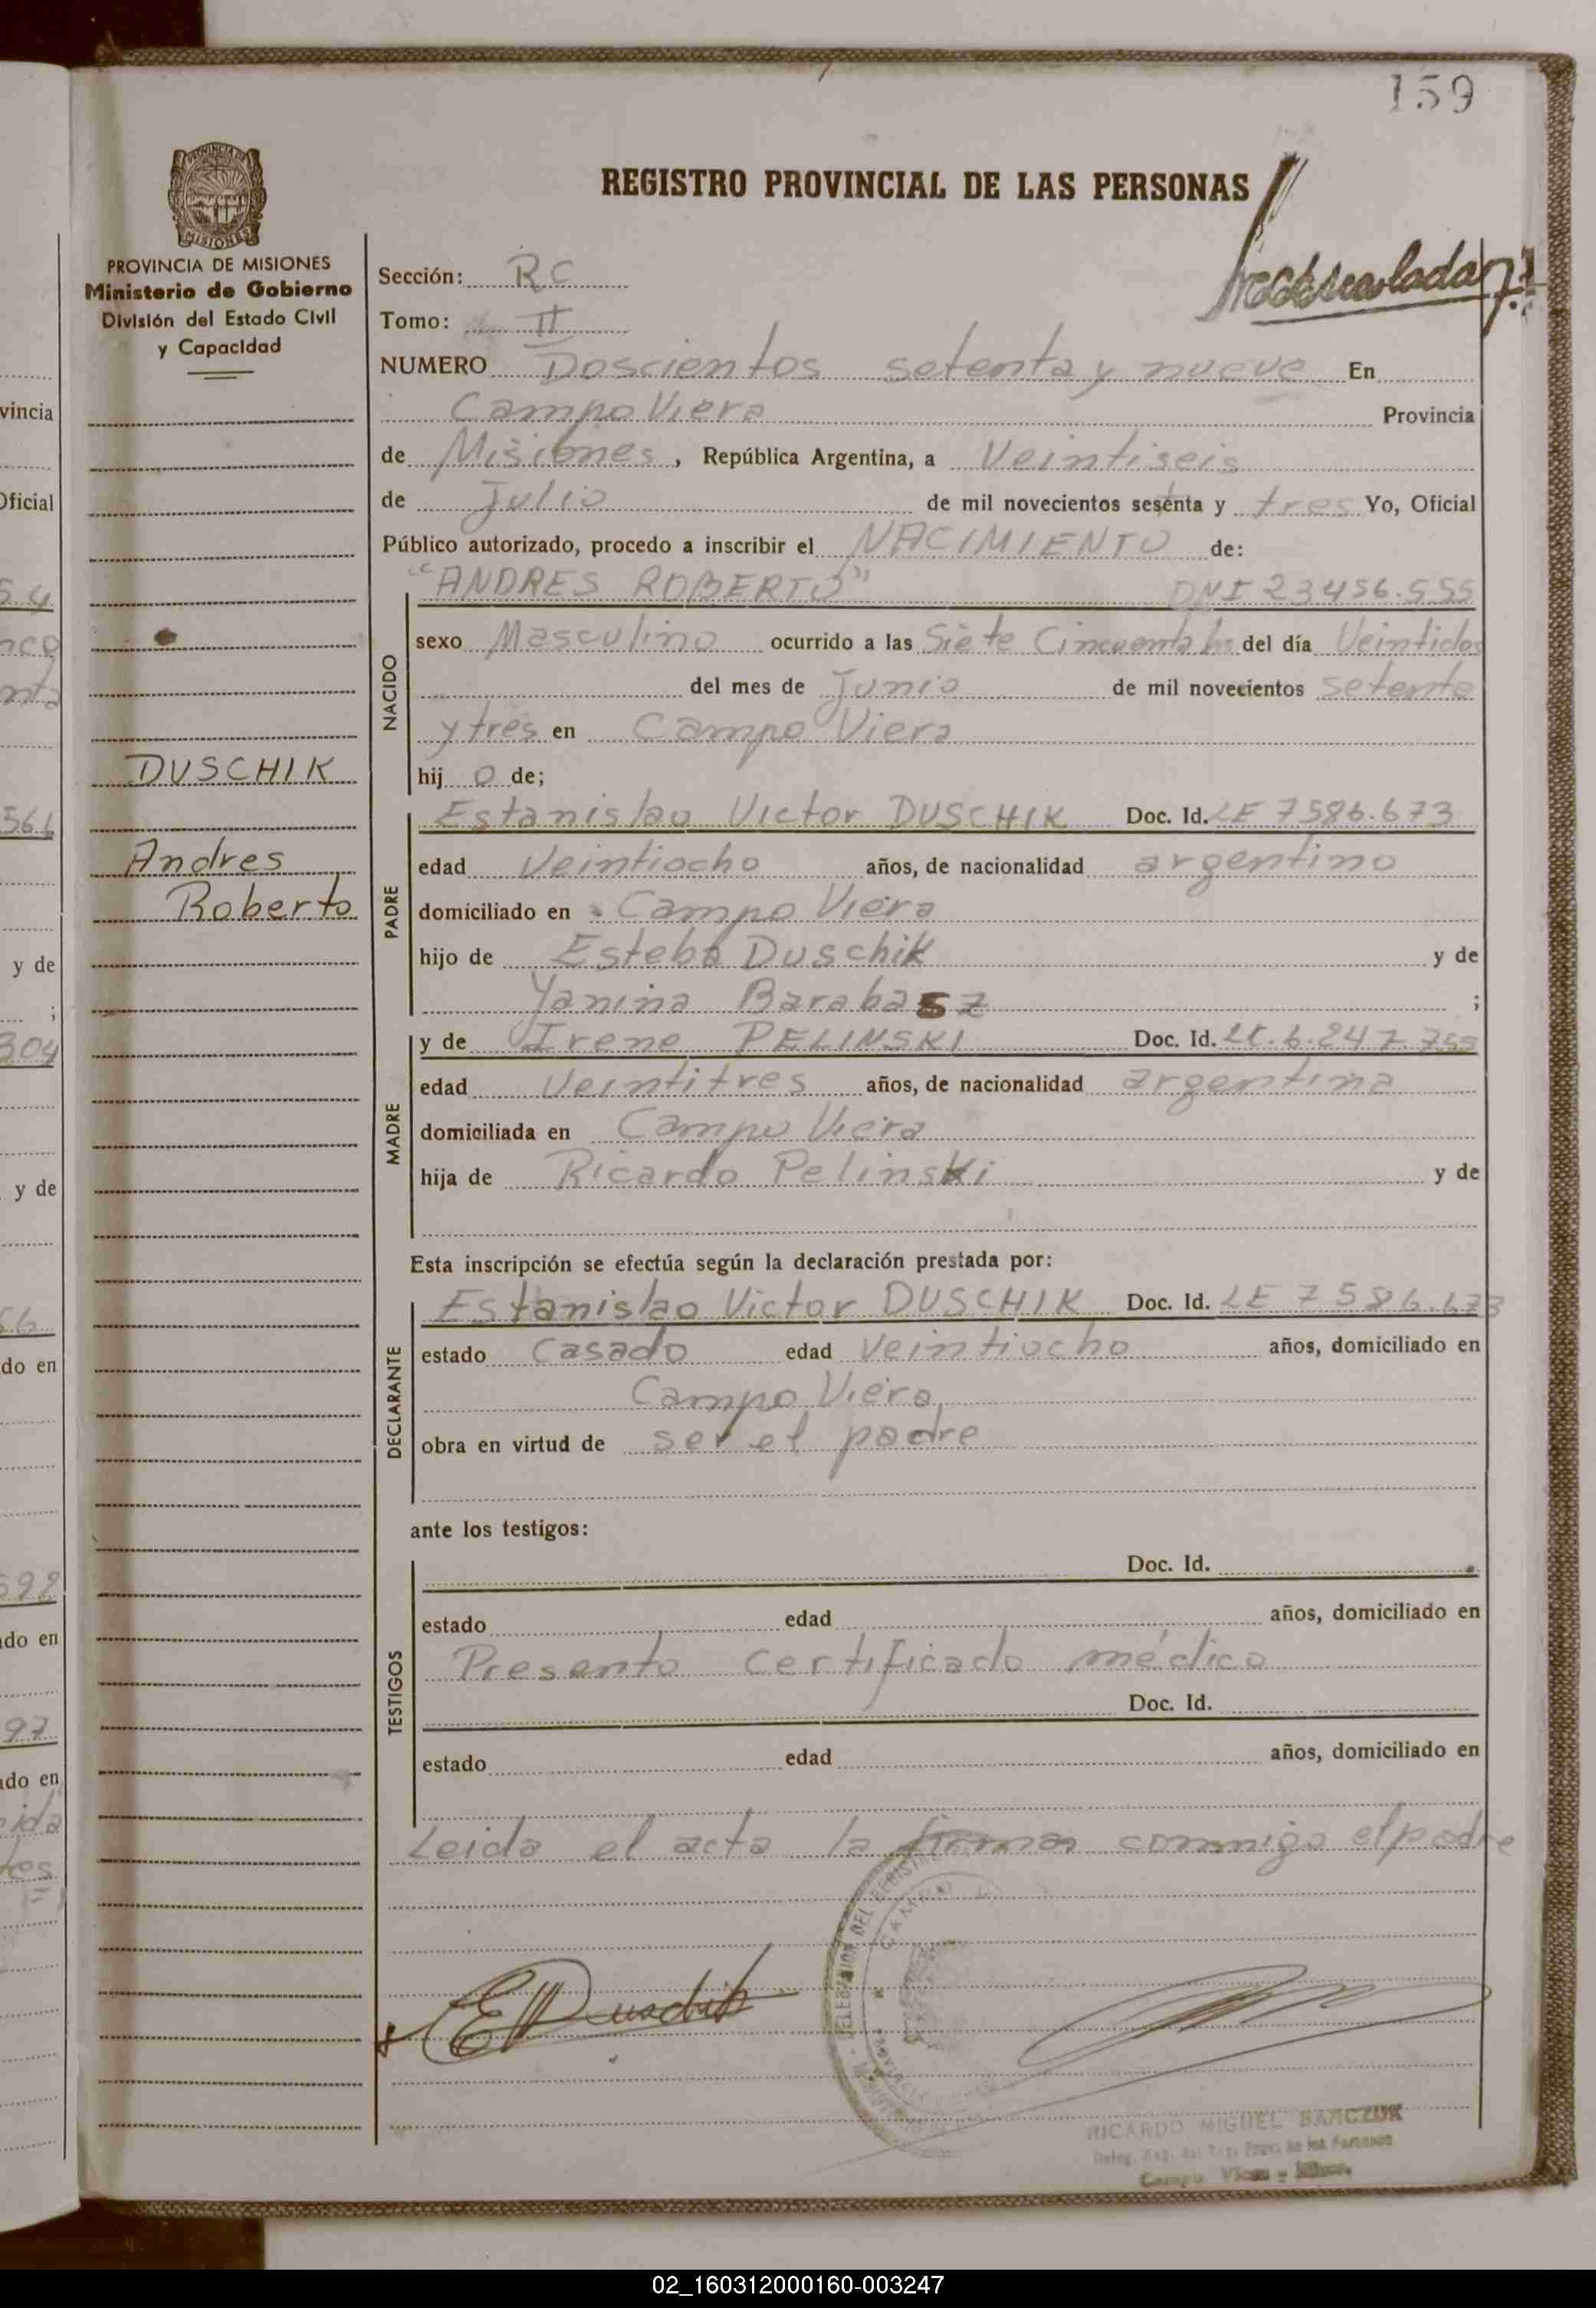 159
REGISTRO PROVINCIAL DE LAS PERSONAS
PROVINCIA DE MISIONES
Ministerio de Gobierno
División del Estado Civil
y Capacidad
DUSCHIK
Andres
Roberto
Sección: RC
Tomo: II
NUMERO Doscientos setenta y nueve En
Campo Viera Provincia
de Misiones, República Argentina, a Veintiseis
de Julio de mil novecientos sesenta y tres Yo, Oficial
Público autorizado, procedo a inscribir el NACIMIENTO de:
"ANDRES ROBERTO" DNI 23456.555
NACIDO
sexo Masculino ocurrido a las Siete Cincuenta hs del día Veintidos
del mes de Junio de mil novecientos setenta
y tres en Campo Viera
hijo de;
PADRE
Estanislao Victor DUSCHIK Doc. Id. LE 7586.673
edad Veintiocho años, de nacionalidad argentino
domiciliado en Campo Viera
hijo de Esteba Duschik y de
Yanina Barabasz ;
MADRE
y de Irene PELINSKI Doc. Id. LC. 6.247.755
edad Veintitres años, de nacionalidad argentina
domiciliada en Campo Viera
hija de Ricardo Pelinski y de
Esta inscripción se efectúa según la declaración prestada por:
DECLARANTE
Estanislao Victor DUSCHIK Doc. Id. LE 7586.673
estado Casado edad Veintiocho años, domiciliado en
Campo Viera
obra en virtud de ser el padre
ante los testigos:
TESTIGOS
Doc. Id.
estado edad años, domiciliado en
Presento certificado médico
Doc. Id.
estado edad años, domiciliado en
Leida el acta la firman conmigo el padre
E V Duschik
RICARDO MIGUEL BARCZUK
02_160312000160-003247